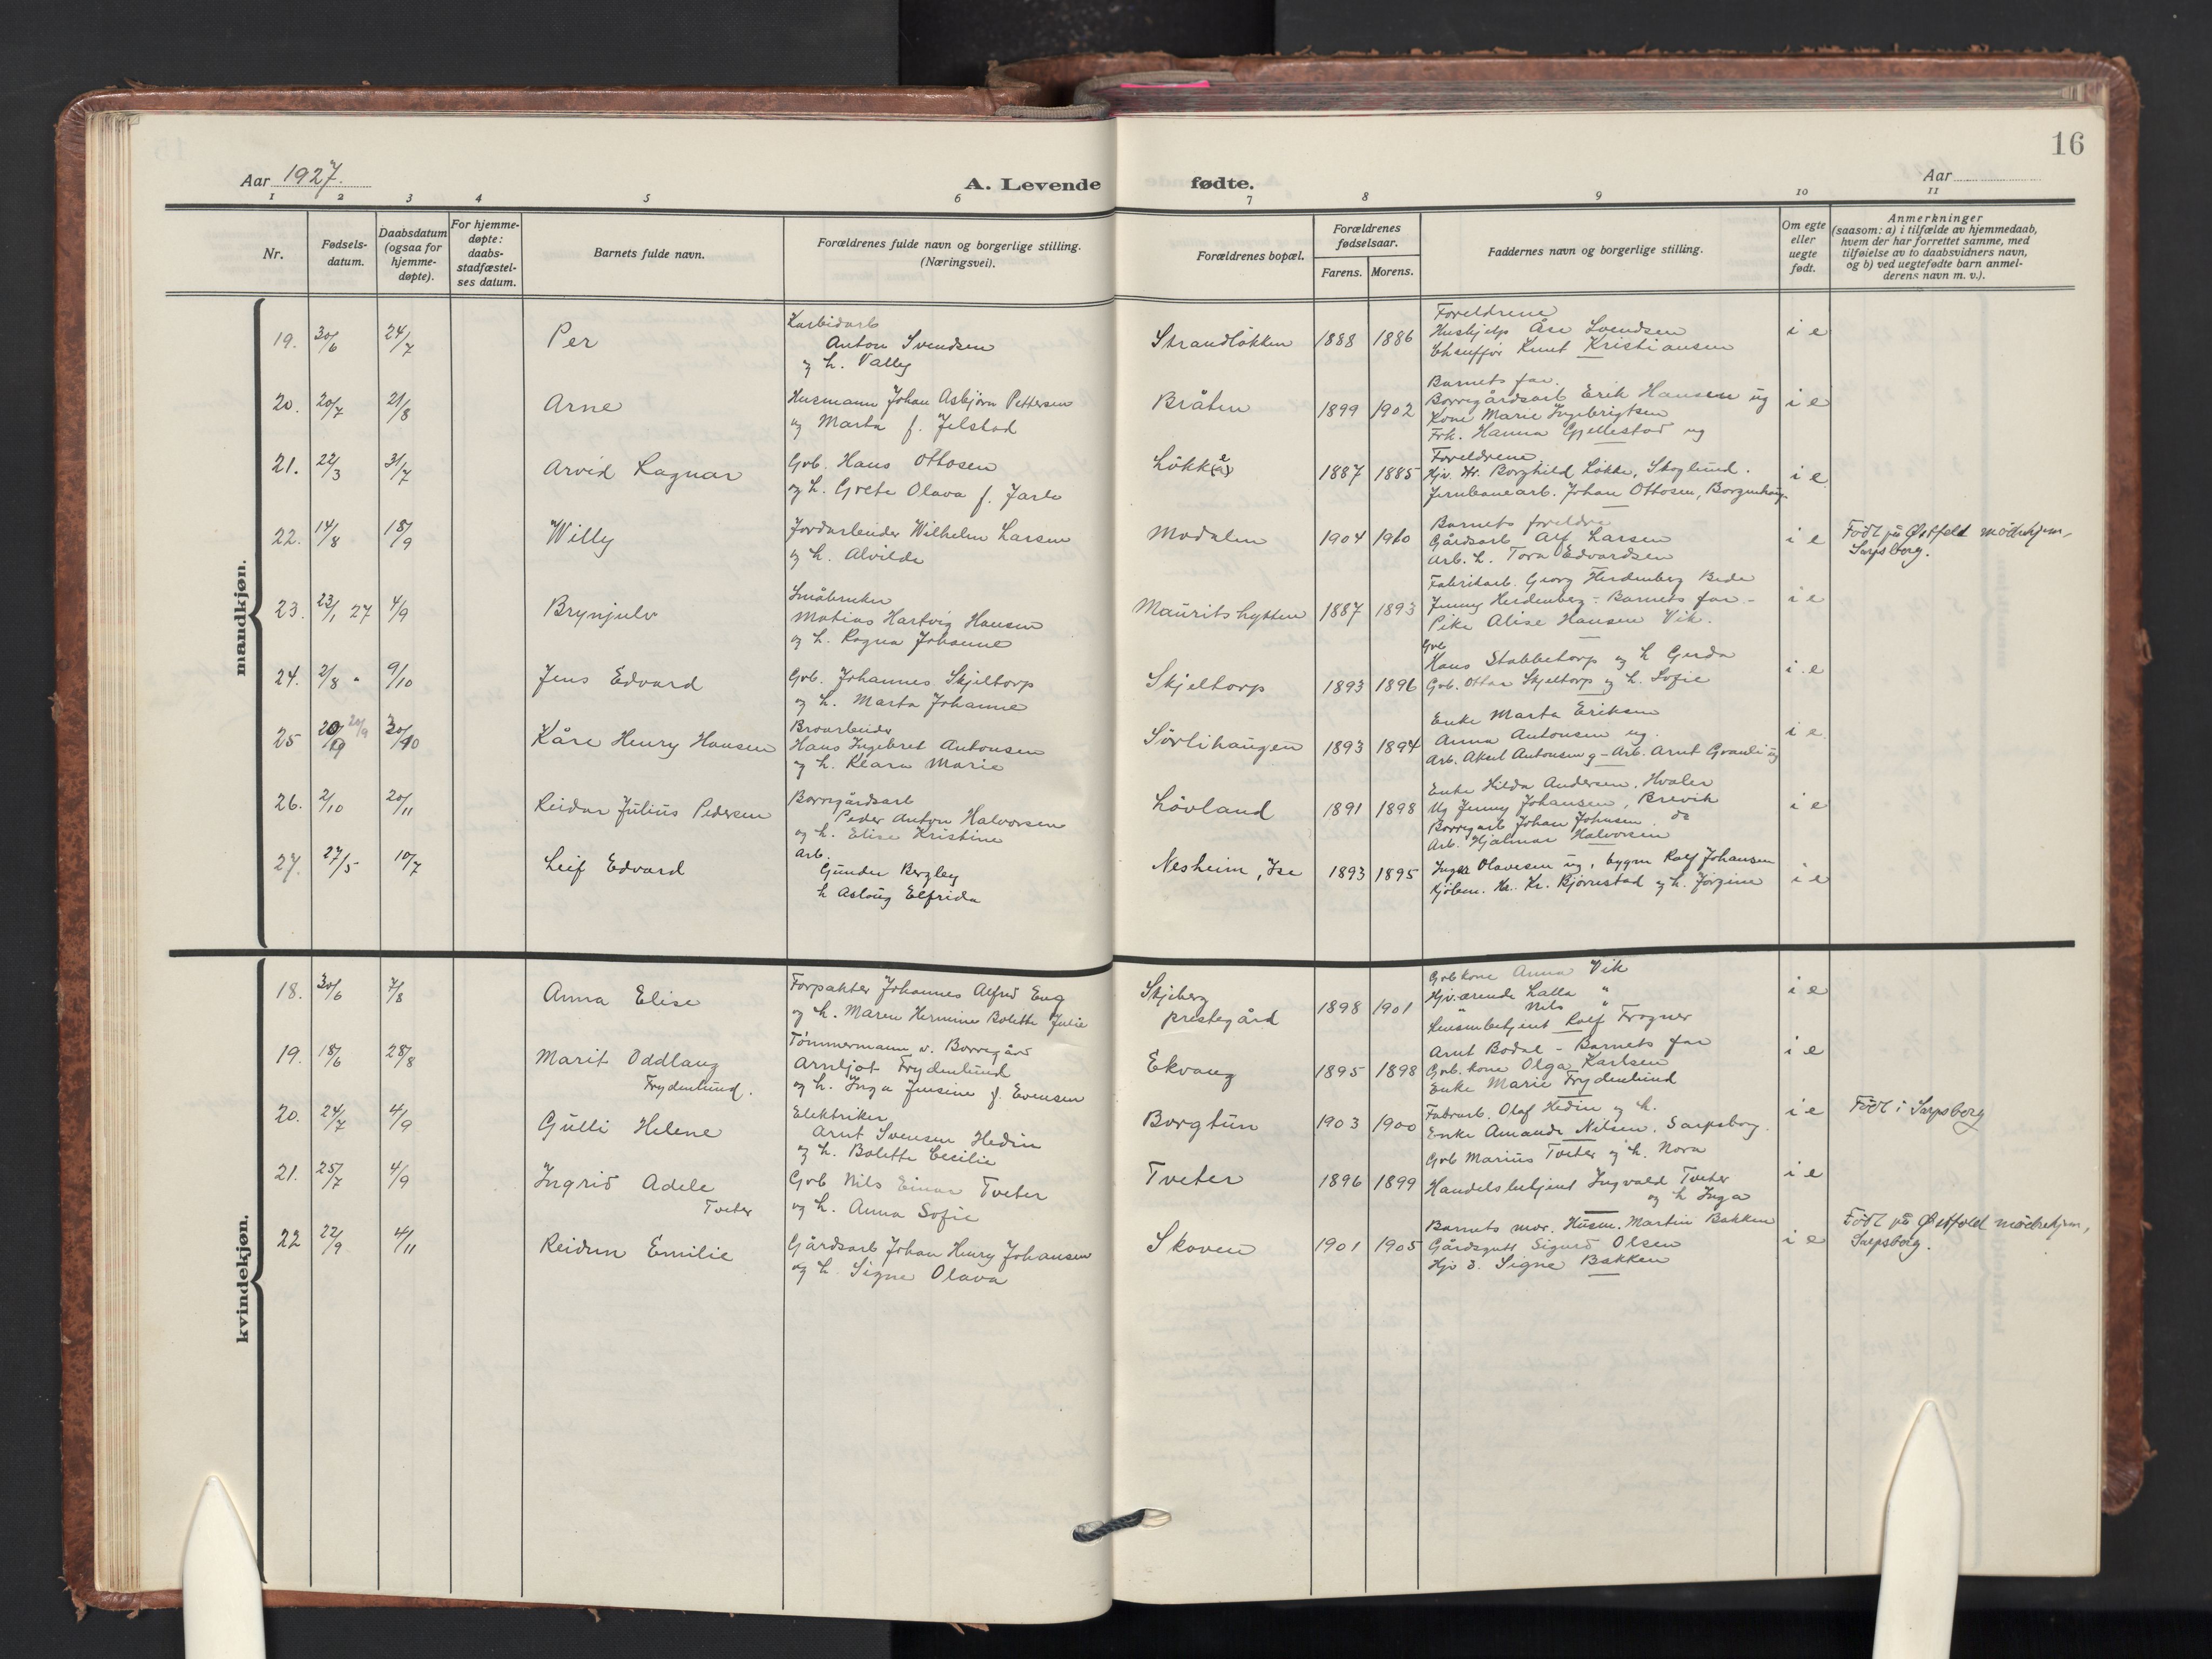 16
Aar 1927.
A. Levende fødte.
Aar
1 2 3 4 5 6 7 8 9 10 11
Nr.
Fødsels-
datum.
Daabsdatum
(ogsaa for
hjemme-
døpte).
For hjemme-
døpte:
daabs-
stadfæstel-
ses datum.
Barnets fulde navn.
Forældrenes fulde navn og borgerlige stilling.
(Næringsvei).
Forældrenes bopæl.
Forældrenes
fødselsaar.
Farens. Morens.
Faddernes navn og borgerlige stilling.
Om egte
eller
uegte
født.
Anmerkninger
(saasom: a) i tilfælde av hjemmedaab,
hvem der har forrettet samme, med
tilføielse av to daabsvidners navn,
og b) ved uegtefødte barn anmel-
derens navn m. v.).
mandkjøn.
19. 30/6 24/7 Per
Karbidarb
Anton Svendsen
og h. Valley
Strandløkken 1888 1886
Foreldrene
Hushjelp Åse Svendsen
Chauffør Knut Kristiansen
i e
20. 20/7 21/8 Arne
Husmann Johan Asbjørn Pettersen
og Marta f. Jelstad
Bråten 1899 1902
Barnets far.
Borregårdsarb Erik Hansen og
Kone Marie Ingebrigtsen
Frk. Hanna Gjellestad ug
i e
21. 22/3 31/7 Arvid Ragnar
Grb. Hans Ottosen
og h. Grete Olava f. Jarle
Løkke 1887 1885
Foreldrene
Hjv. dtr. Borghild Løkke, Skoglund.
Jernbanearb. Johan Ottosen, Borgenhaug.
i e
22. 14/8 18/9 Willy
Jordarbeider Wilhelm Larsen
og h. Alvilde
Modalen 1904 1910
Barnets foreldre
Gårdsarb Alf Larsen
Arb. h. Tora Edvardsen
i e
Født på Østfold mødrehjem,
Sarpsborg.
23. 23/1 27 4/9 Brynjulv
Småbruker
Matias Hartvig Hansen
og h. Ragna Johanne
Mauritshytten 1887 1893
Fabrikarb. Georg Herdenberg Bede
Jenny Herdenberg - Barnets far -
Pike Alise Hansen Vik.
i e
24. 2/8 " 9/10 Jens Edvard
Grb. Johannes Skjeltorp
og h. Marta Johanne
Skjeltorp 1893 1896
Grb
Hans Stabbetorp og h Gerda
Grb. Ottar Skjeltorp og h. Sofie
i e
25 20/9 20/9 30/10 Kåre Henry Hansen
Broarbeider
Hans Ingebret Antonsen
og h. Klara Marie
Sørlihaugen 1893 1894
Enke Marta Eriksen
Anna Antonsen ug.
Arb. Aksel Antonsen g - Arb. Arnt Granli ug
i e
26. 2/10 20/11 Reidar Julius Pedersen
Borregårdsarb
Peder Anton Halvorsen
og h. Elise Kristine
Løvland 1891 1898
Enke Hilda Andersen, Hvaler
Ug Jenny Johansen, Brevik
Borregarb Johan Johnsen. do
Arb. Hjalmar Halvorsen
i e
27. 27/5 10/7 Leif Edvard
Arb.
Gunder Bergley
h Aslaug Elfrida
Nesheim, Ise 1893 1895
Inger Olavesen ug, bygm Ralf Johansen
Kjøbm. Kr. Kr. Bjørnestad og h. Jørgine
i e
kvindekjøn.
18. 30/6 7/8 Anna Elise
Forpakter Johannes Alfred Eng
og h. Maren Hermine Bolette Julie
Skjeberg
prestegård
1898 1901
Grb kone Anna Vik
Hjv.ærende Lalla "
" Nils "
Lensmbetjent Ralf Frogner
i e
19. 18/6 28/8 Marit Oddlaug
Frydenlund.
Tømmermann v. Borregård
Arnljot Frydenlund
og h. Inga Jensine f. Evensen
Ekvang 1895 1898
Arnt Bodal - Barnets far
Grb. kone Olga Karlsen
Enke Marie Frydenlund
i e
20. 24/7 4/9 Gulli Helene
Elektriker
Arnt Svensen Hedin
og h. Bolette Cecilie
Borgtun 1903 1900
Fabrarb. Olaf Hedin og h.
Enke Amanda Nilsen. Sarpsborg.
i e
Født i Sarpsborg
21. 25/7 4/9 Ingrid Adele
Tveter
Grb Nils Einar Tveter
og h. Anna Sofie
Tveter 1896 1899
Grb Marius Tveter og h. Nora
Handelsbetjent Ingvald Tveter
og h Inga
i e
22 22/9 4/11 Reidun Emilie
Gårdsarb Johan Henry Johansen
og h. Signe Olava
Skoven 1901 1905
Barnets mor. Husm. Martin Bakken
Gårdsgutt Sigurd Olsen
Hjv d. Signe Bakken
i e
Født på Østfold mødrehjem,
Sarpsborg.